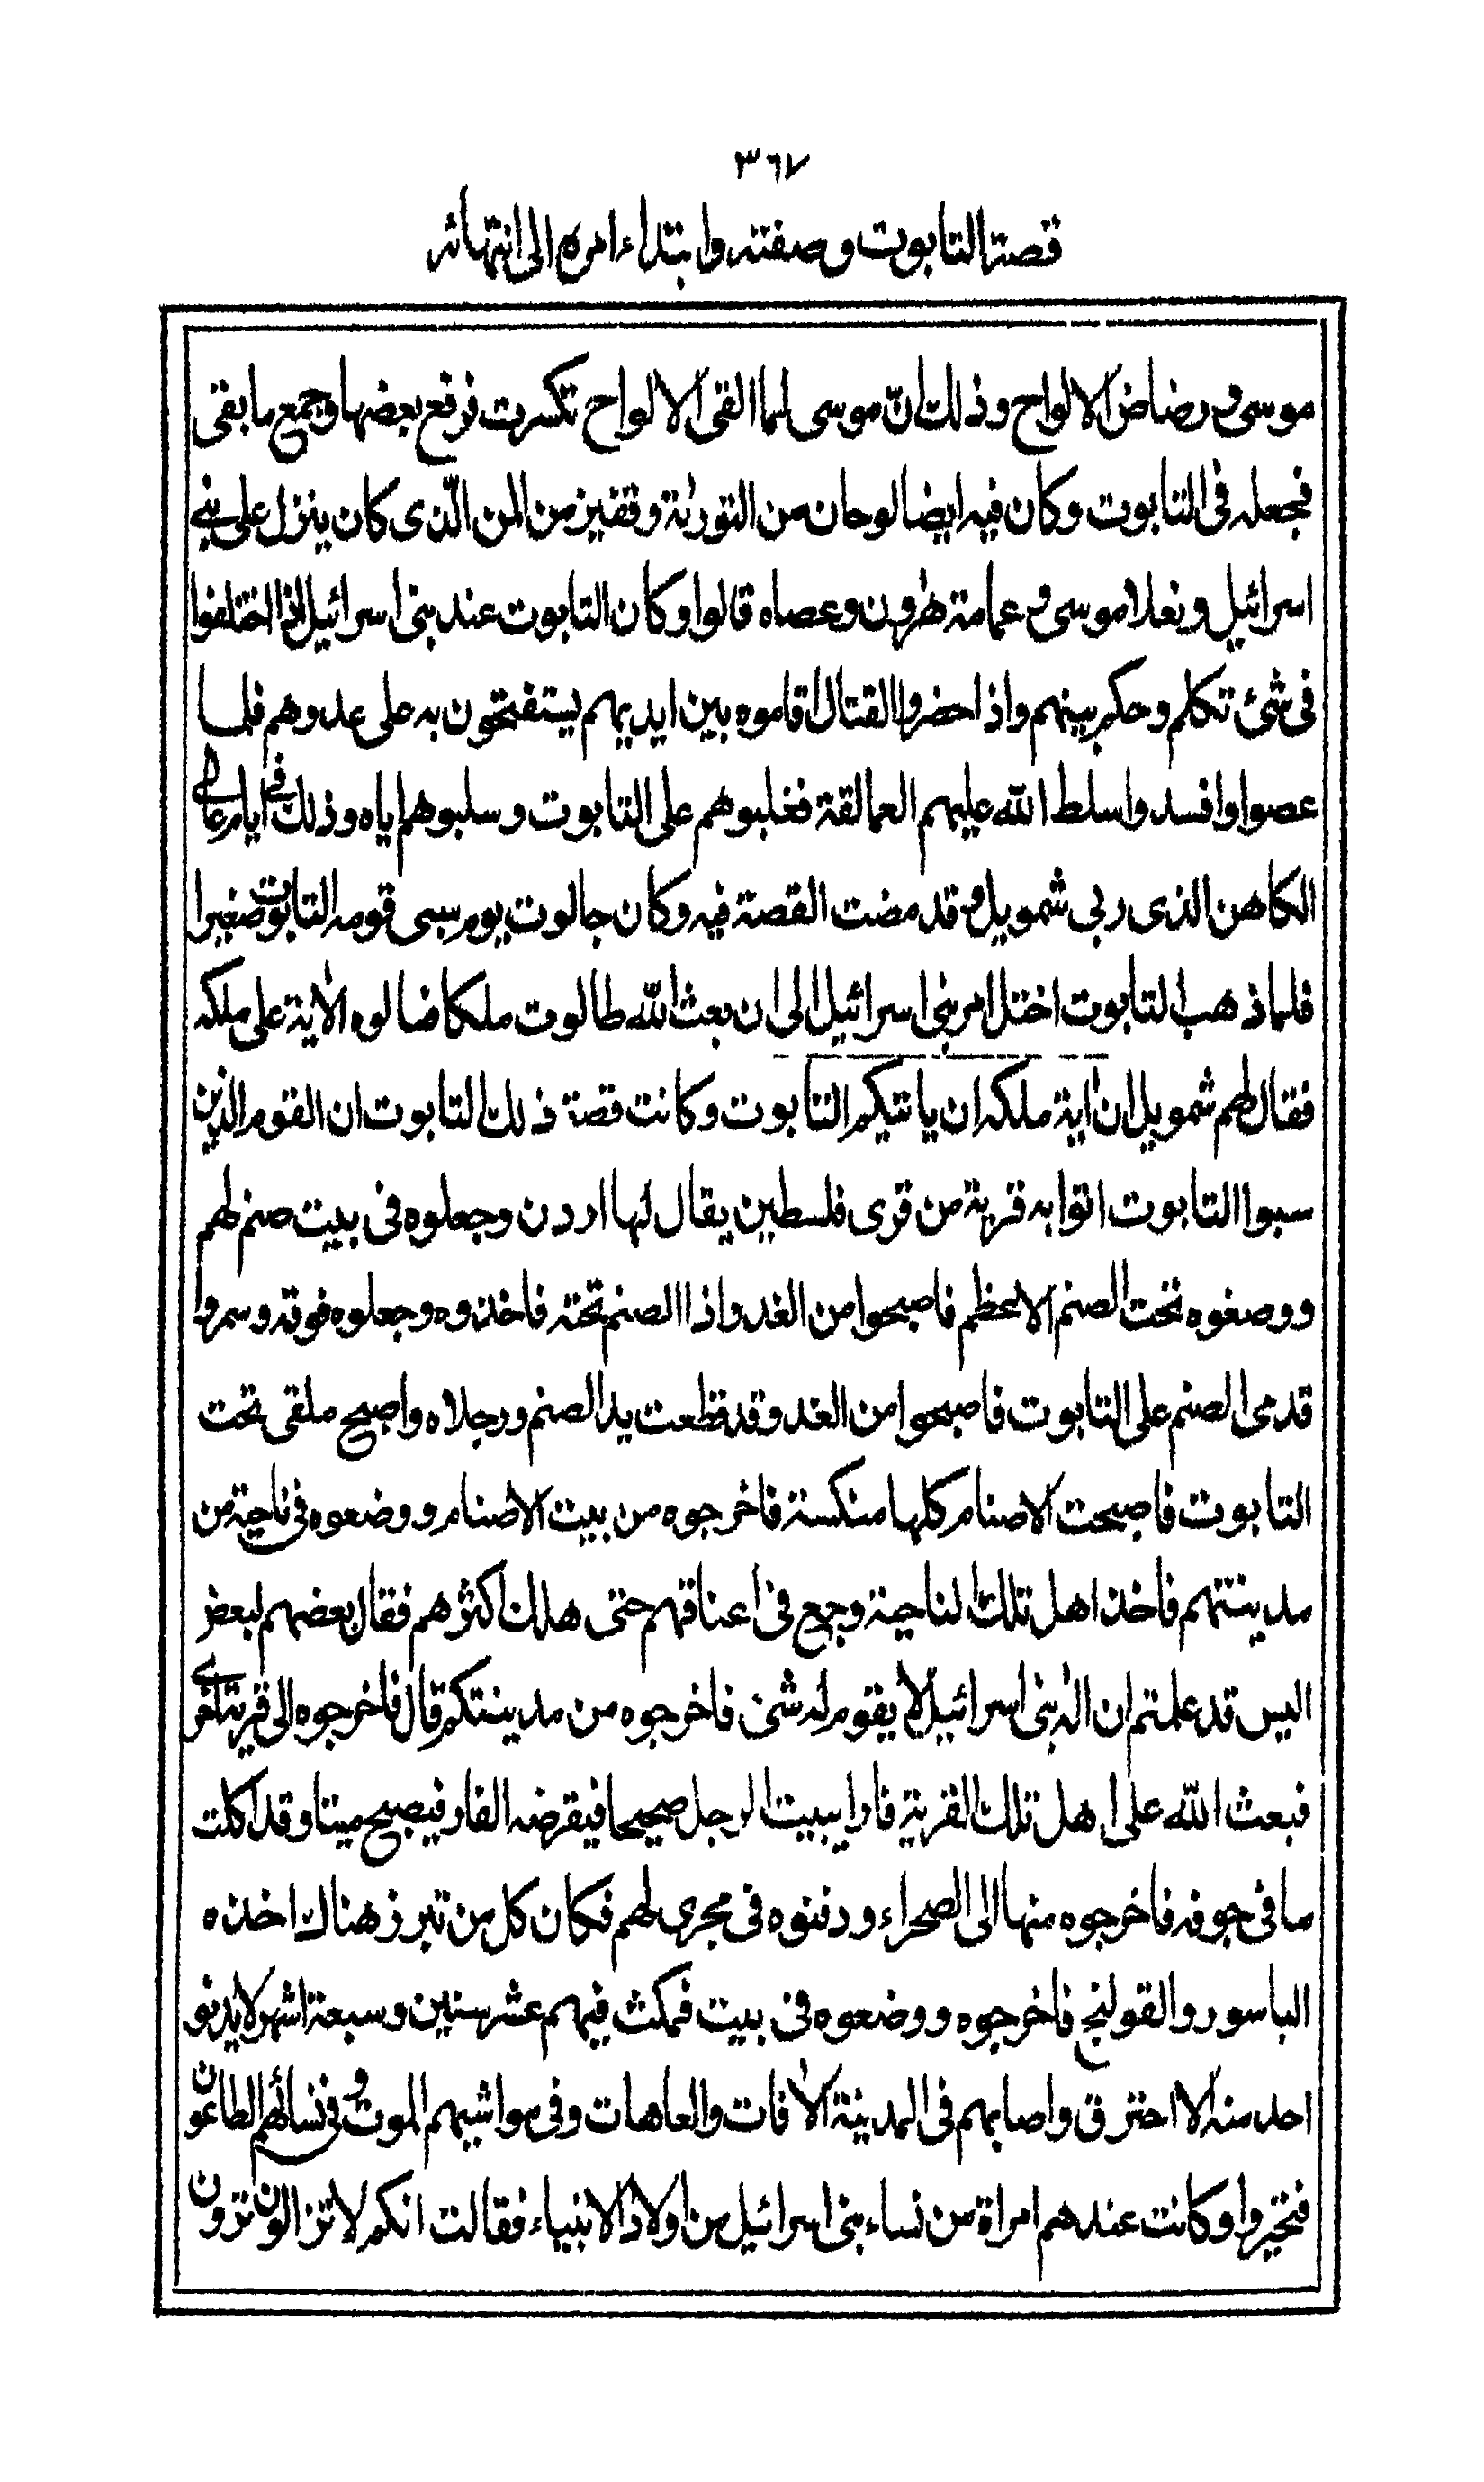 ٣٦٧
قصة التابوت وصفته وابتداء امره الى انتهائه
موسى ورضاض الالواح وذلك انّ موسى لما القى الالواح تكسرت فرفع بعضها وجمع ما بقى
فجعله فى التابوت وكان فيه ايضا لوحان من التورٰىة وقفيز من المن الّذى كان ينزل على بنے
اسرائيل ونعلا موسى وعمامة هٰرون وعصاه قالوا وكان التابوت عند بنى اسرائيل اذا اختلفوا
فى شئ تكلم وحكم بينهم واذا حضروا القتال اقاموه بين ايديهم يستفتحون به على عدوهم فلما
عصوا وافسدوا سلط الله عليهم العمالقة فغلبوهم على التابوت وسلبوهم اياه وذلك فے ايام عالے
الكاهن الذى ربى شمويل وقد مضت القصة فيه وكان جالوت يوم سبى قومه التابوت صغيرا
فلما ذهب التابوت اختل امر بنى اسرائيل الى ان بعث الله طالوت ملكا ضالوه الاٰية على ملكه
فقال لهم شمويل ان اٰية ملكه ان ياتيكم التابوت وكانت قصة ذلك التابوت ان القوم الذين
سبوا التابوت اتوا به قرية من قرى فلسطين يقال لها اردن وجعلوه فى بيت صنم لهم
ووصغوه تحت الصنم الاعظم فاصبحوا من الغد واذا الصنم تحته فاخذوه وجعلوه فوقه وسمروا
قدمى الصنم على التابوت فاصبحوا من الغد وقد قطعت يد الصنم ورجلاه واصبح ملقى تحت
التابوت فاصبحت الاصنام كلها منكسة فاخرجوه من بيت الاصنام ووضعوه فى ناحية من
مدينتهم فاخذ اهل تلك الناحية وجع فى اعناقهم حتى هلك اكثرهم فقال بعضهم لبعض
اليس قد علمتم ان الٰه بنى اسرائيل لا يقوم له شئ فاخرجوه من مدينتكم قال فاخرجوه الى قرية اخرے
فبعث الله على اهل تلك القرية فارا يبيت الرجل صحيحا فيقرضه الفار فيصبح ميتا وقد اكلت
ما فى جوفه فاخرجوه منها الى الصحراء ودفنوه فى مجرى لهم فكان كل من تبرز هناك اخذه
الباسور والقولنج فاخرجوه ووضعوه فى بيت فمكث فيهم عشر سنين وسبعة اشهر لا يدنو
احد منه الا احترق واصابهم فى المدينة الاٰفات والعاهات وفى مواشيهم الموت وفى نسائهم الطاعون
فتحيروا وكانت عندهم امراة من نساء بنى اسرائيل من اولاد الانبياء فقالت انكم لا تزالون ترون